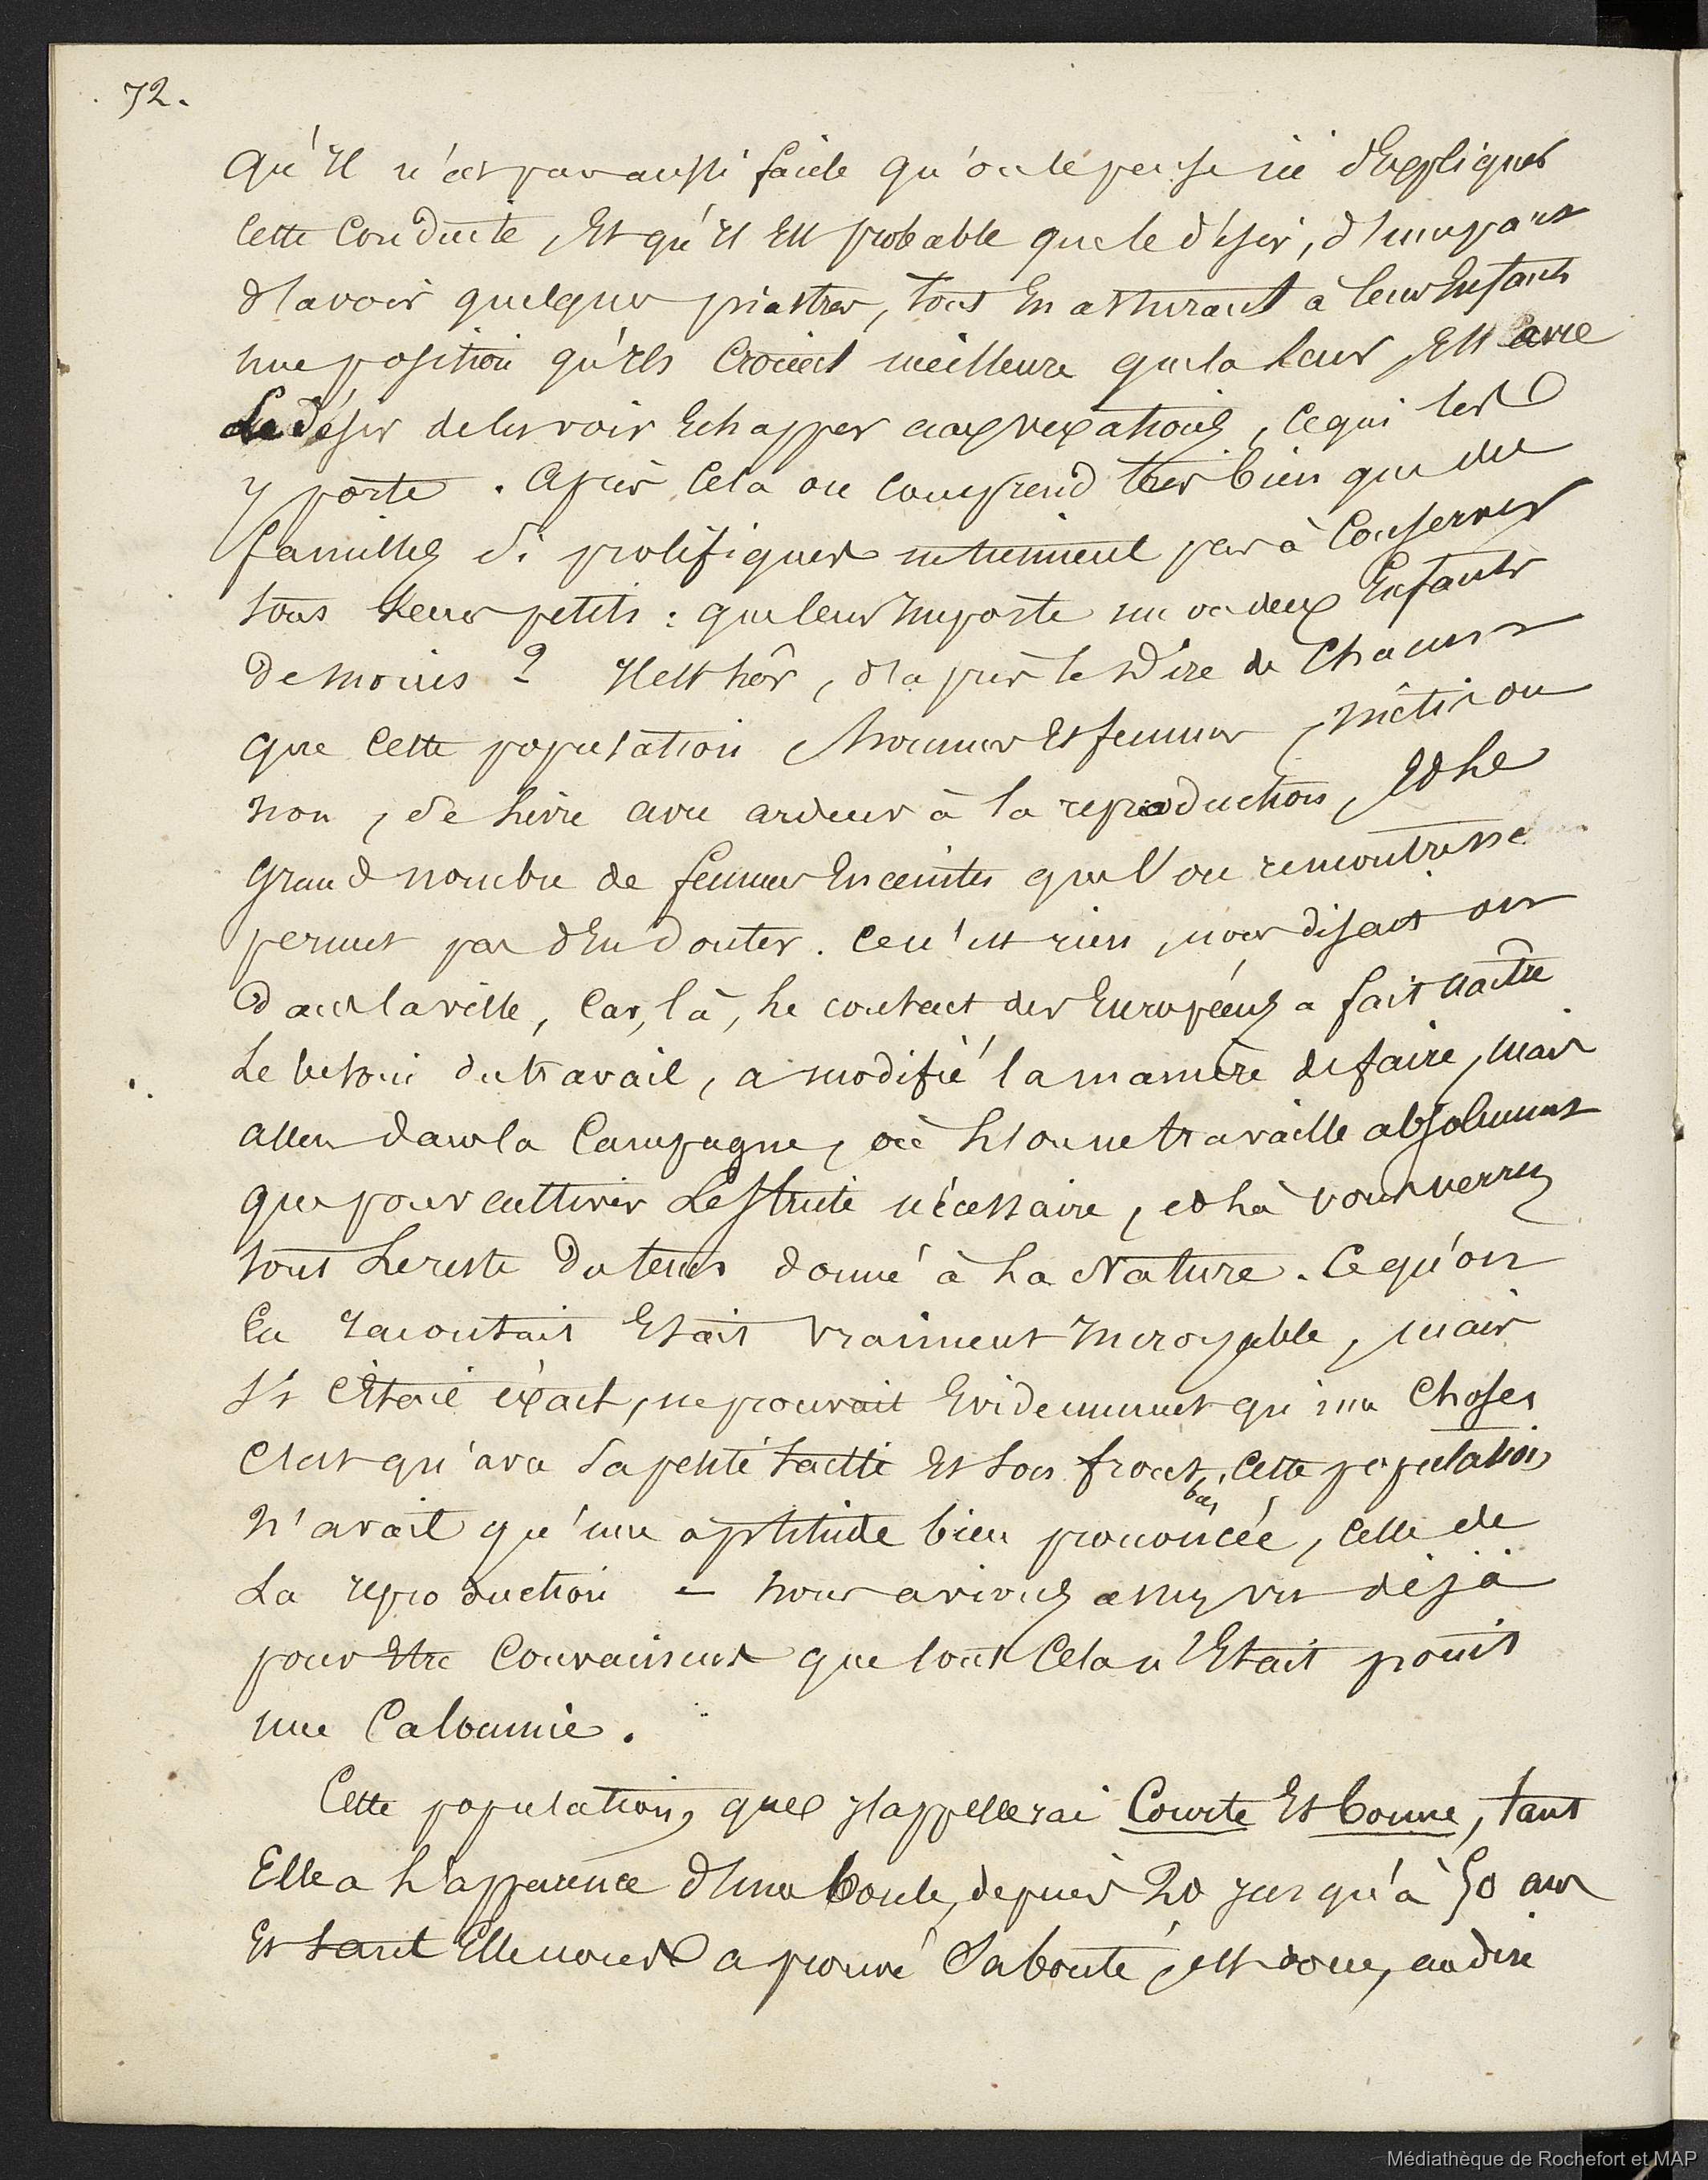 72.
qu'il n'est pas aussi facile qu'on le pense ici d'expliquer
cette conduite, et qu'il est probable que le désir, d'une part
d'avoir quelques piastres, tout en assurant à leurs enfants
une position qu'ils croient meilleure que la leur, est avec
le désir de les voir échapper aux vexations, ce qui les
y porte. Après cela on comprend très bien que des
familles si prolifiques ne tiennent pas à conserver
tous leurs petits : que leur importe un ou deux enfants
de moins ? Il est sûr, d'après le dire de chacun
que cette population hommes et femmes, métis ou
non, se livre avec ardeur à la reproduction, et le
grand nombre de femmes enceintes que l'on rencontre ne
permet pas d'en douter. Ce n'est rien, nous disait on
dans la ville, car, là, le contact des Européens a fait naître
le besoin du travail, a modifié la manière de faire, mais
allez dans la campagne, où l'on ne travaille absolument
que pour cultiver le strict nécessaire, et là vous verrez
tout le reste du tems donné à la nature. Ce qu'on
en racontait était vraiment incroyable, mais
s'il était exact, ne prouvait évidemment qu'une chose
c'est qu'avec sa petite taille et son front bas, cette population
n'avait qu'une aptitude bien prononcée, celle de
la reproduction – nous avions assez vu déjà
pour être convaincus que tout cela n'était point
une calomnie.
Cette population, que j'appellerai courte et bonne, tant
elle a l'apparence d'une boule, depuis 20 jusqu'à 50 ans
et tant elle nous a prouvé sa bonté, est donc, au dire
Médiathèque de Rochefort et MAP